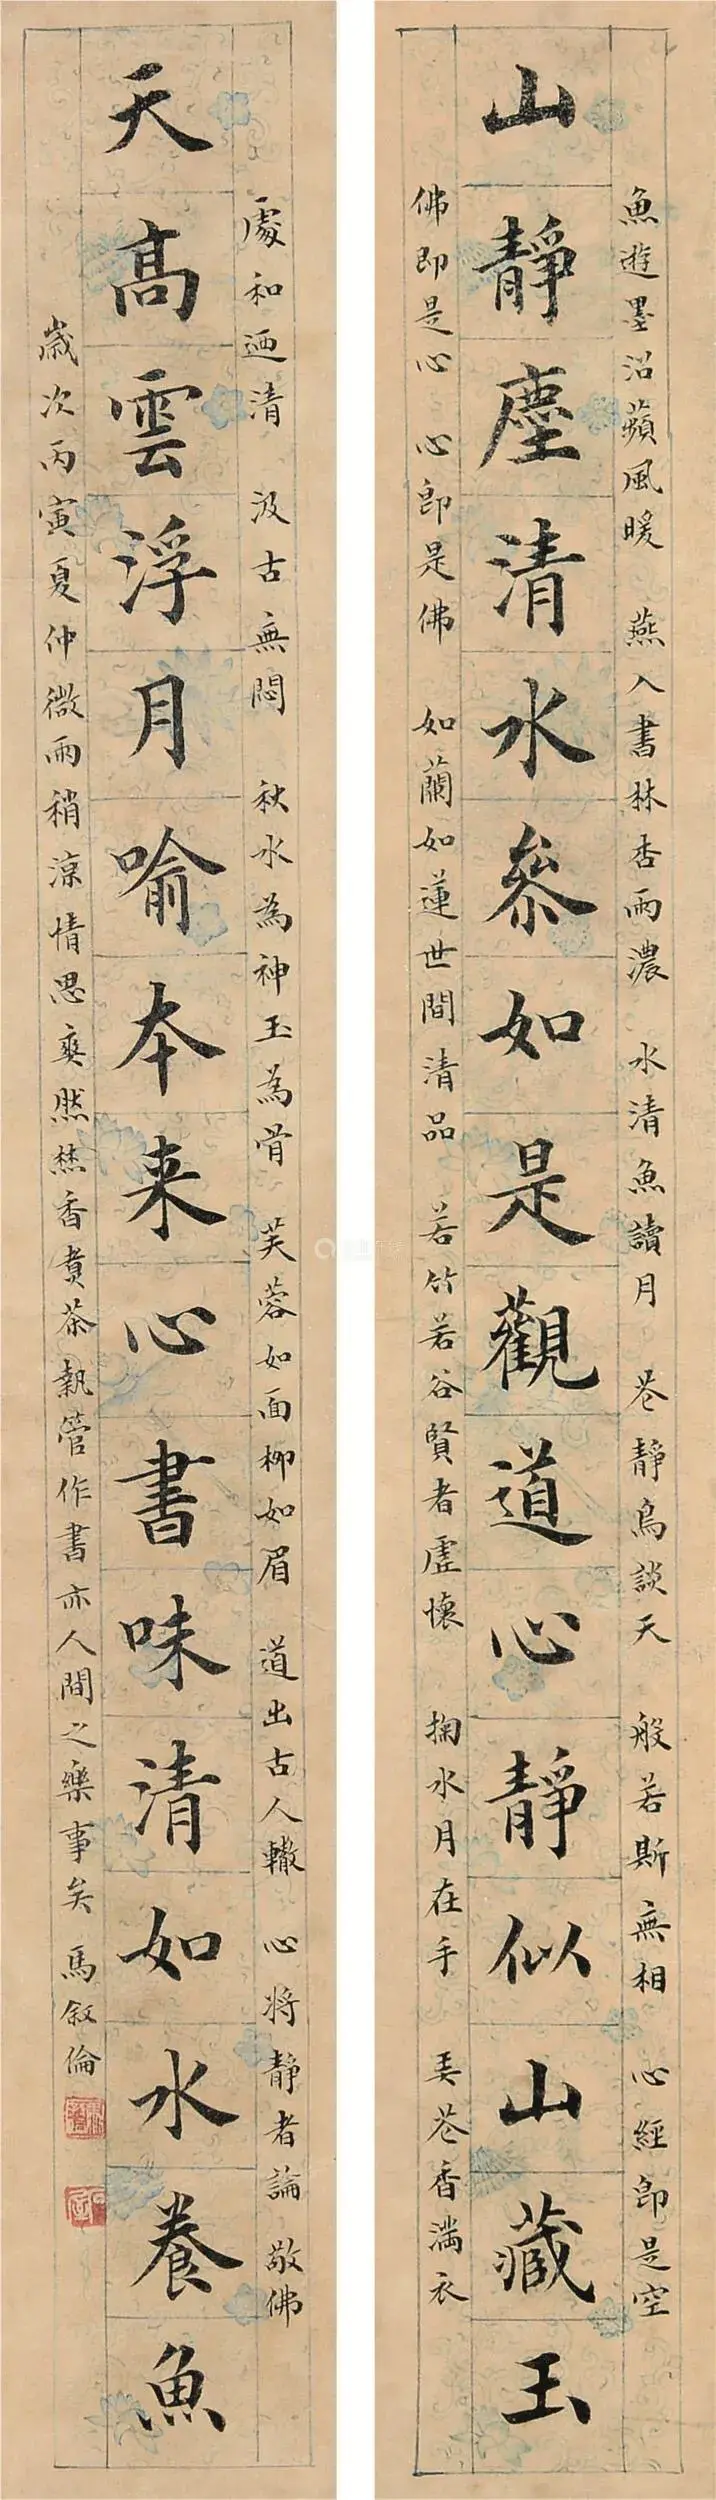 魚遊墨沼蘋風暖 燕入書林杏雨濃 水清魚讀月 花靜鳥談天 般若斯無相 心經即是空
山靜塵清水參如是觀道心靜似山藏玉
佛即是心 心即是佛 如蘭如蓮世間清品 若竹若谷賢者虛懷 掬水月在手 弄花香滿衣
處和迺清 汲古無悶 秋水為神玉為骨 芙蓉如面柳如眉 道出古人轍 心將靜者論 敬佛
天高雲浮月喻本来心書味清如水養魚
歲次丙寅夏仲微雨稍涼情思爽然焚香煑茶執管作書亦人間之樂事矣 馬敘倫